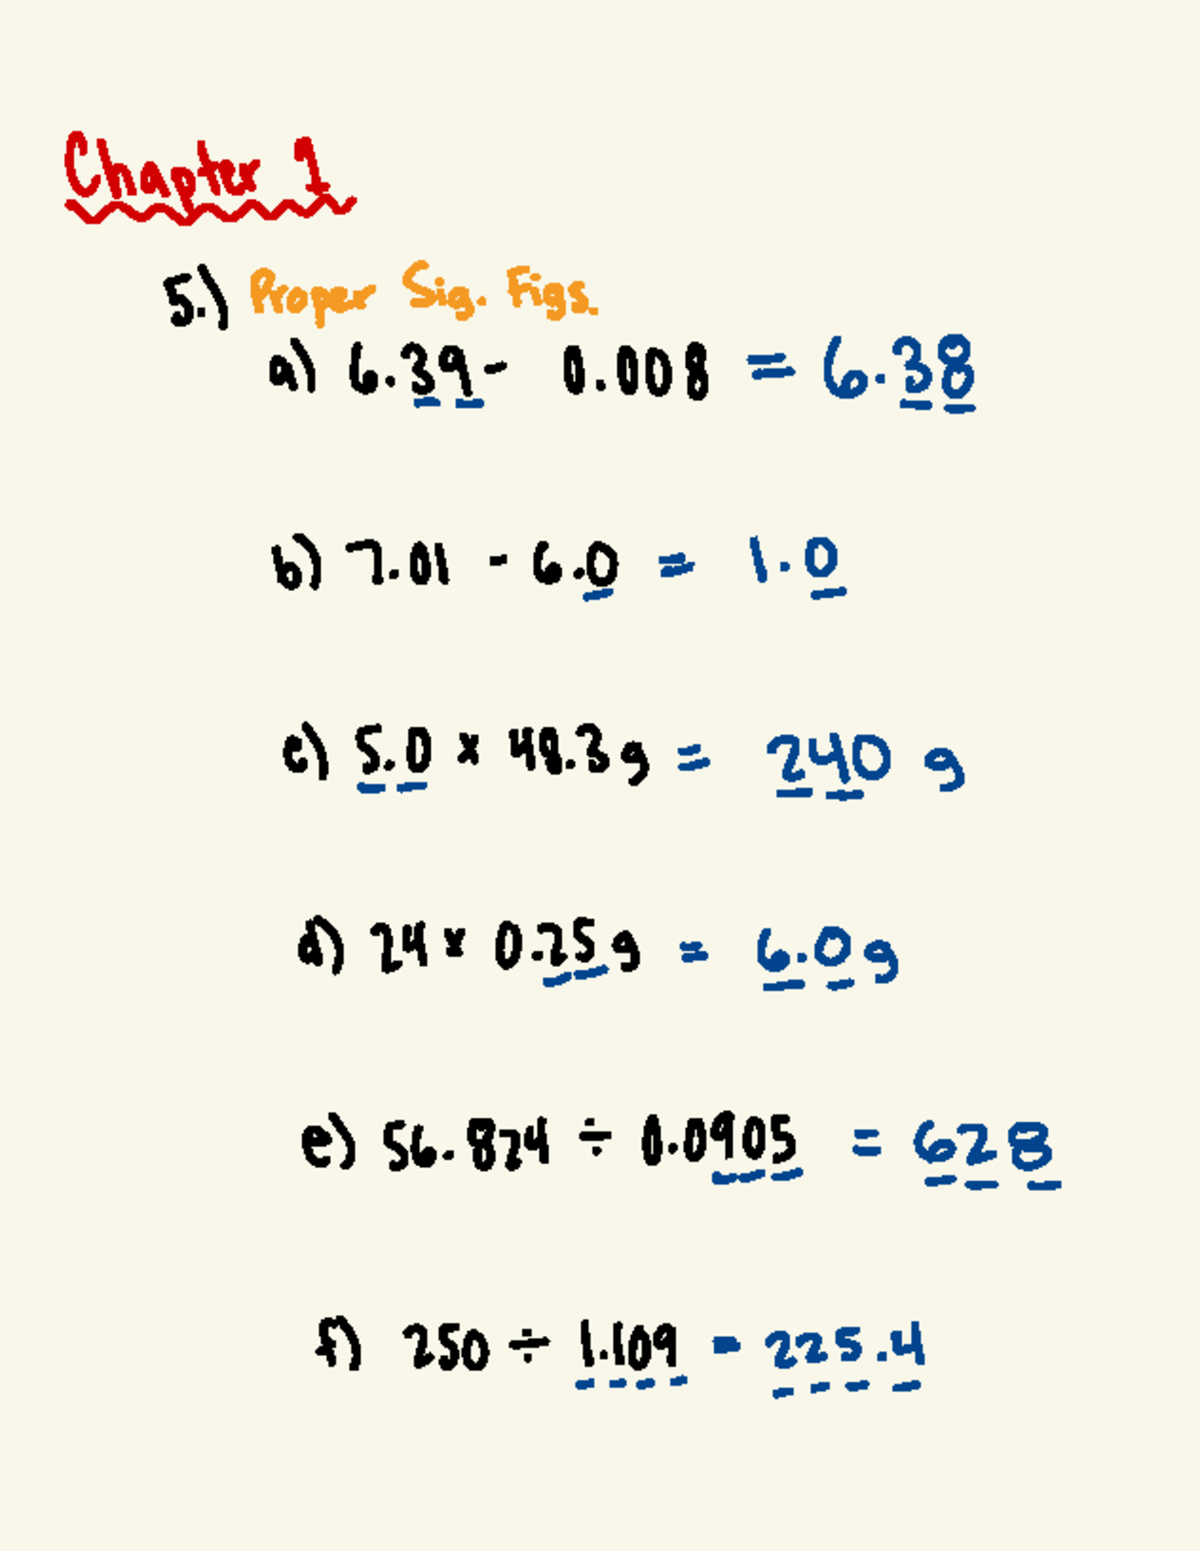 Chapter 1
5.) Proper Sig. Figs.
a) 6.39 - 0.008 = 6.38
b) 7.01 - 6.0 = 1.0
c) 5.0 x 48.3g = 240 g
d) 24 x 0.25g = 6.0g
e) 56.824 ÷ 0.0905 = 628
f) 250 ÷ 1.109 = 225.4